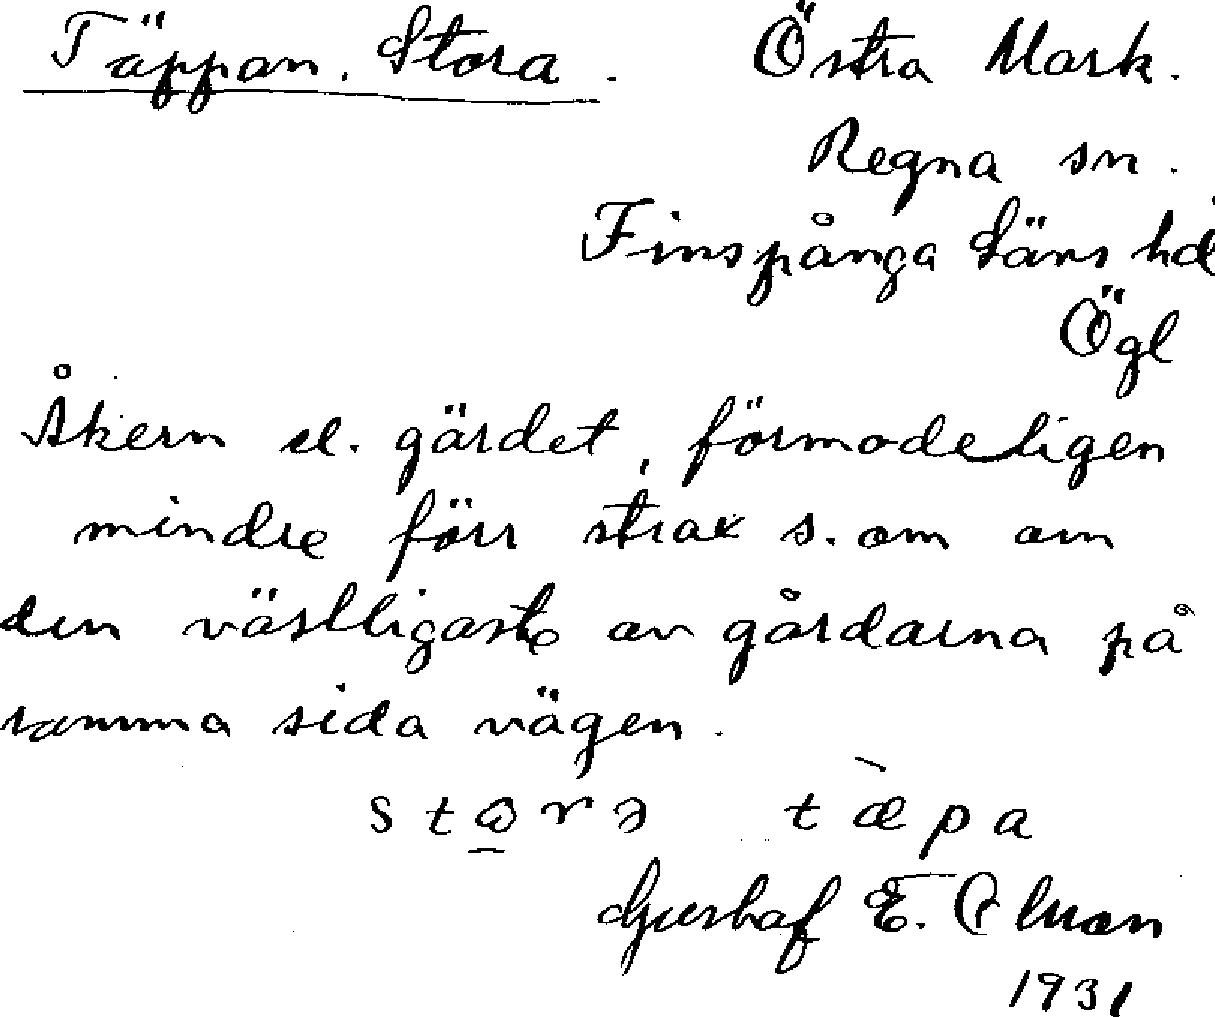 Täppan, Stora. Östra Mark.
Regna sn.
Finspånga Läns hd
Ögl
Åkern el. gärdet, förmodeligen
mindre förr strax s. om om
den västligaste av gårdarna på
samma sida vägen.
stɷrə tæ̀pa
Gustaf E. Olman
1931